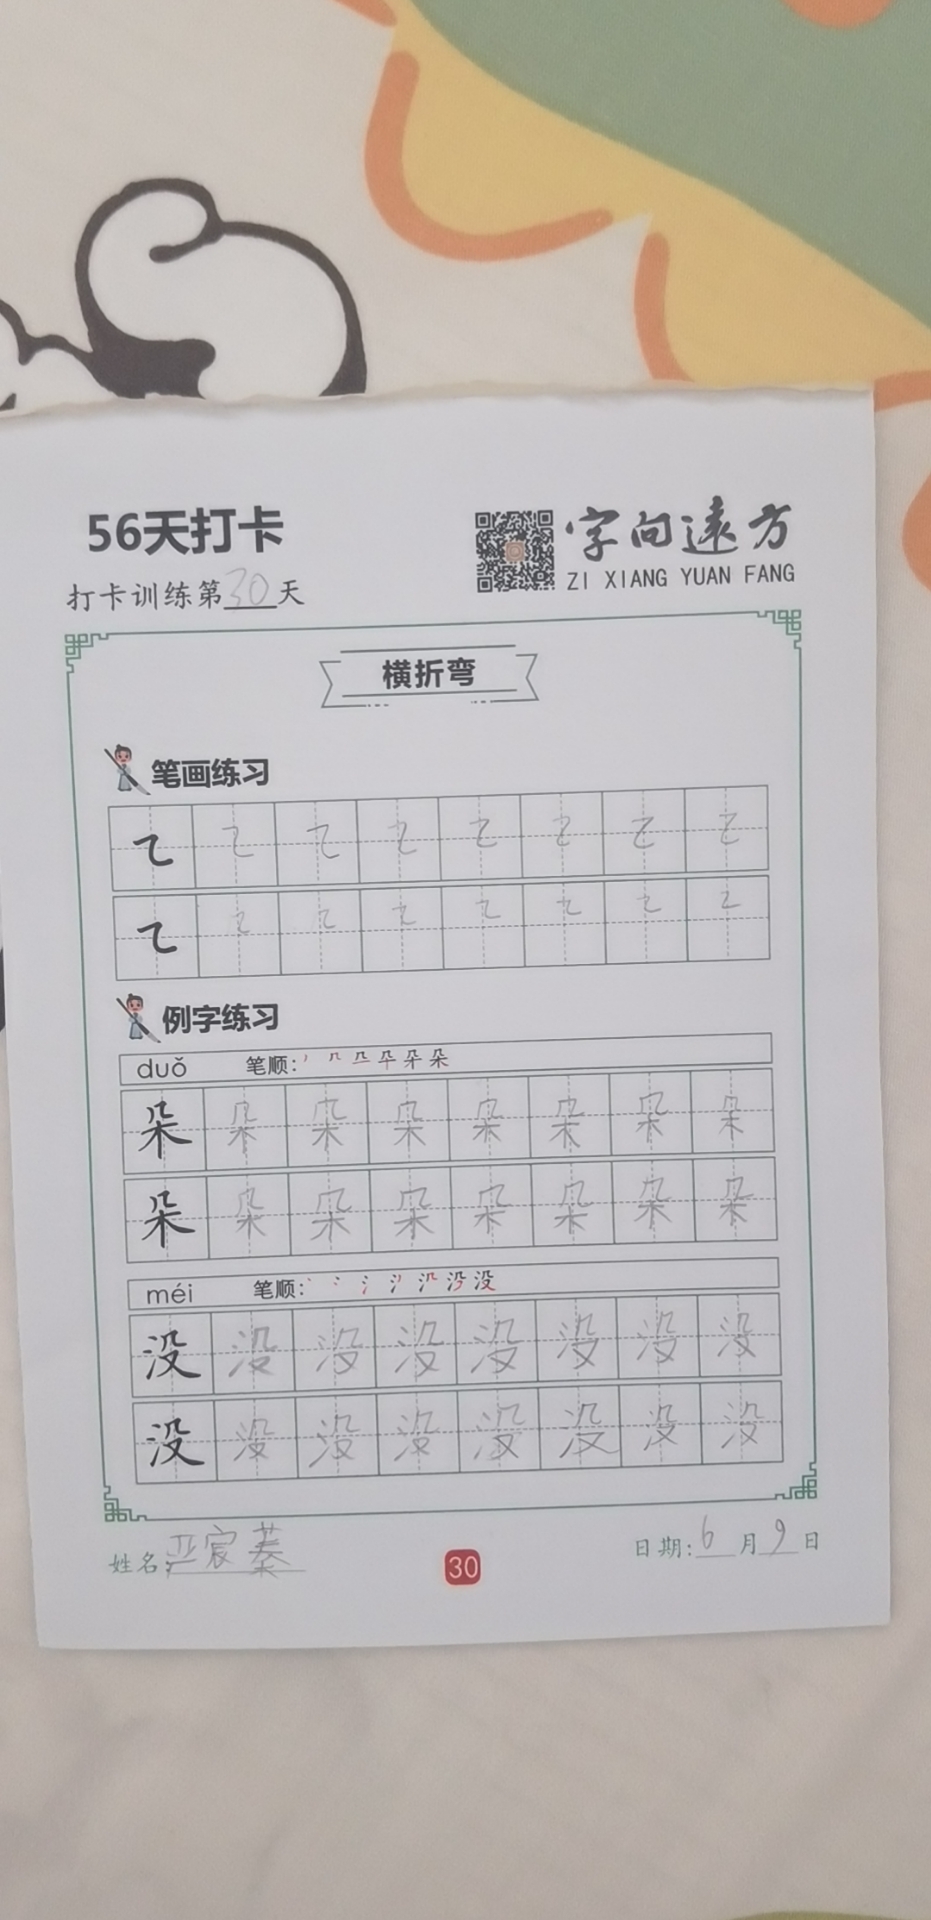 56天打卡
字向遠方
ZI XIANG YUAN FANG
打卡训练第30天
横折弯
笔画练习
例字练习
duǒ 笔顺:
朵 朵 朵 朵 朵 朵 朵 朵
朵 朵 朵 朵 朵 朵 朵 朵
méi 笔顺:
没 没 没 没 没 没 没 没
没 没 没 没 没 没 没 没
姓名: 严宸蓁
日期: 6月9日
30